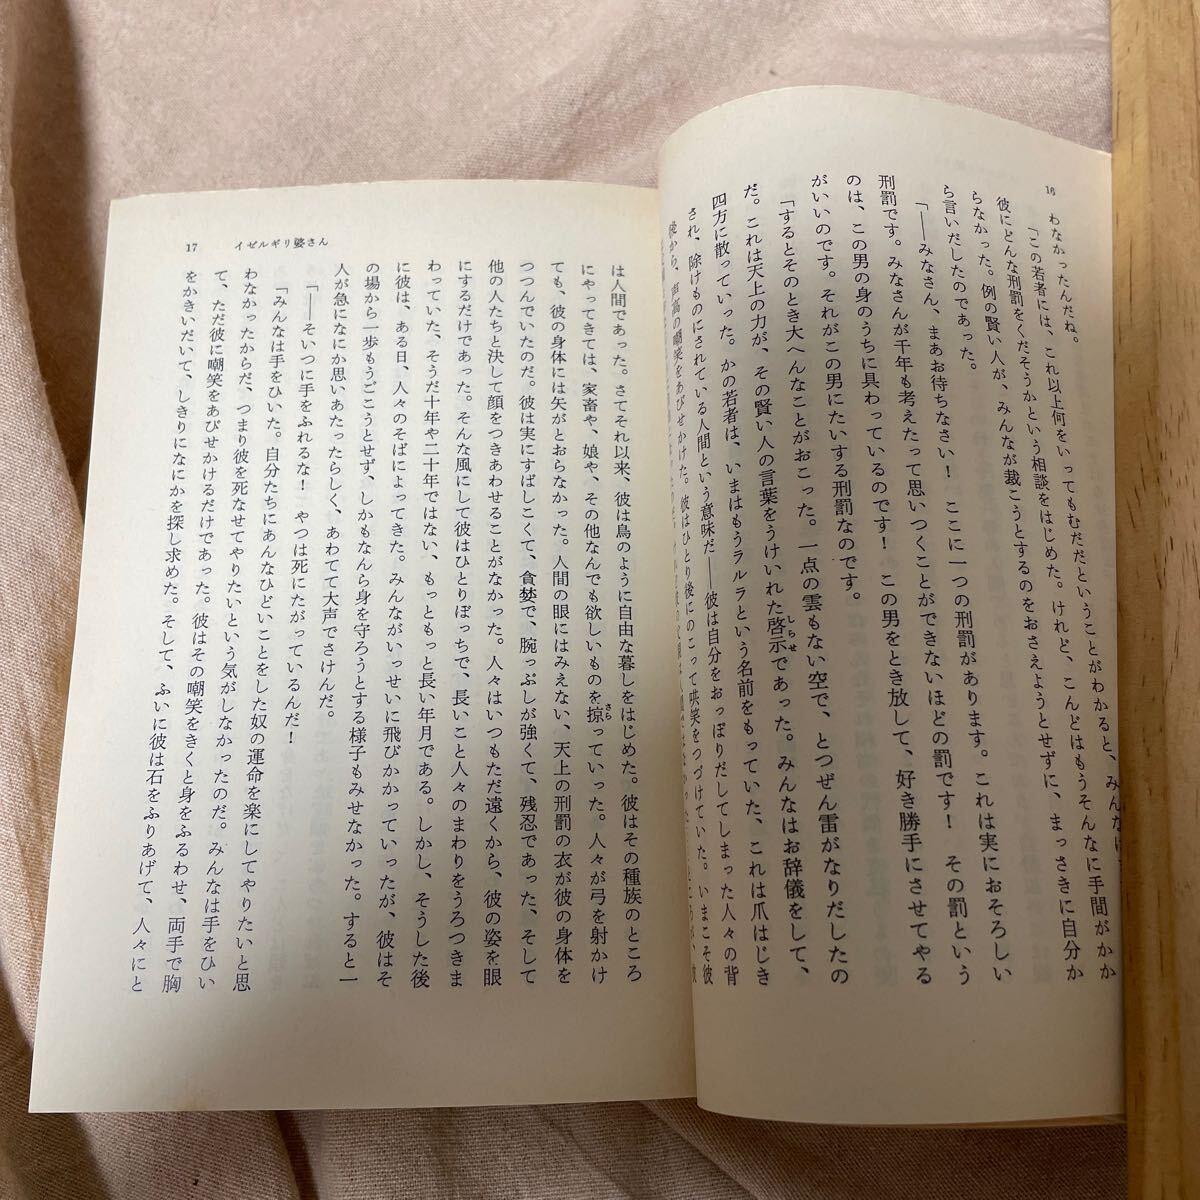 16
わなかったんだね。
「この若者には、これ以上何をいってもむだだということがわかると、みんなは
彼にどんな刑罰をくだそうかという相談をはじめた。けれど、こんどはもうそんなに手間がかか
らなかった。例の賢い人が、みんなが裁こうとするのをおさえようとせずに、まっさきに自分か
ら言いだしたのであった。
「――みなさん、まあお待ちなさい！　ここに一つの刑罰があります。これは実におそろしい
刑罰です。みなさんが千年も考えたって思いつくことができないほどの罰です！　その罰という
のは、この男の身のうちに具わっているのです！　この男をとき放して、好き勝手にさせてやる
がいいのです。それがこの男にたいする刑罰なのです。
「するとそのとき大へんなことがおこった。一点の雲もない空で、とつぜん雷がなりだしたの
だ。これは天上の力が、その賢い人の言葉をうけいれた啓示であった。みんなはお辞儀をして、
しらせ
四方に散っていった。かの若者は、いまはもうラルラという名前をもっていた、これは爪はじき
され、除けものにされている人間という意味だ――彼は自分をおっぽりだしてしまった人々の背
後から、声高の嘲笑をあびせかけた。彼はひとり後にのこって哄笑をつづけていた。いまこそ彼
17
イゼルギリ婆さん
は人間であった。さてそれ以来、彼は鳥のように自由な暮しをはじめた。彼はその種族のところ
にやってきては、家畜や、娘や、その他なんでも欲しいものを掠っていった。人々が弓を射かけ
さら
ても、彼の身体には矢がとおらなかった。人間の眼にはみえない、天上の刑罰の衣が彼の身体を
つつんでいたのだ。彼は実にすばしこくて、貪婪で、腕っぷしが強くて、残忍であった、そして
他の人たちと決して顔をつきあわせることがなかった。人々はいつもただ遠くから、彼の姿を眼
にするだけであった。そんな風にして彼はひとりぼっちで、長いこと人々のまわりをうろつきま
わっていた、そうだ十年や二十年ではない、もっともっと長い年月である。しかし、そうした後
に彼は、ある日、人々のそばによってきた。みんながいっせいに飛びかかっていったが、彼はそ
の場から一歩もうごこうとせず、しかもなんら身を守ろうとする様子もみせなかった。すると一
人が急になにか思いあたったらしく、あわてて大声でさけんだ。
「――そいつに手をふれるな！　やつは死にたがっているんだ！
「みんなは手をひいた。自分たちにあんなひどいことをした奴の運命を楽にしてやりたいと思
わなかったからだ、つまり彼を死なせてやりたいという気がしなかったのだ。みんなは手をひい
て、ただ彼に嘲笑をあびせかけるだけであった。彼はその嘲笑をきくと身をふるわせ、両手で胸
をかきいだいて、しきりになにかを探し求めた。そして、ふいに彼は石をふりあげて、人々にと